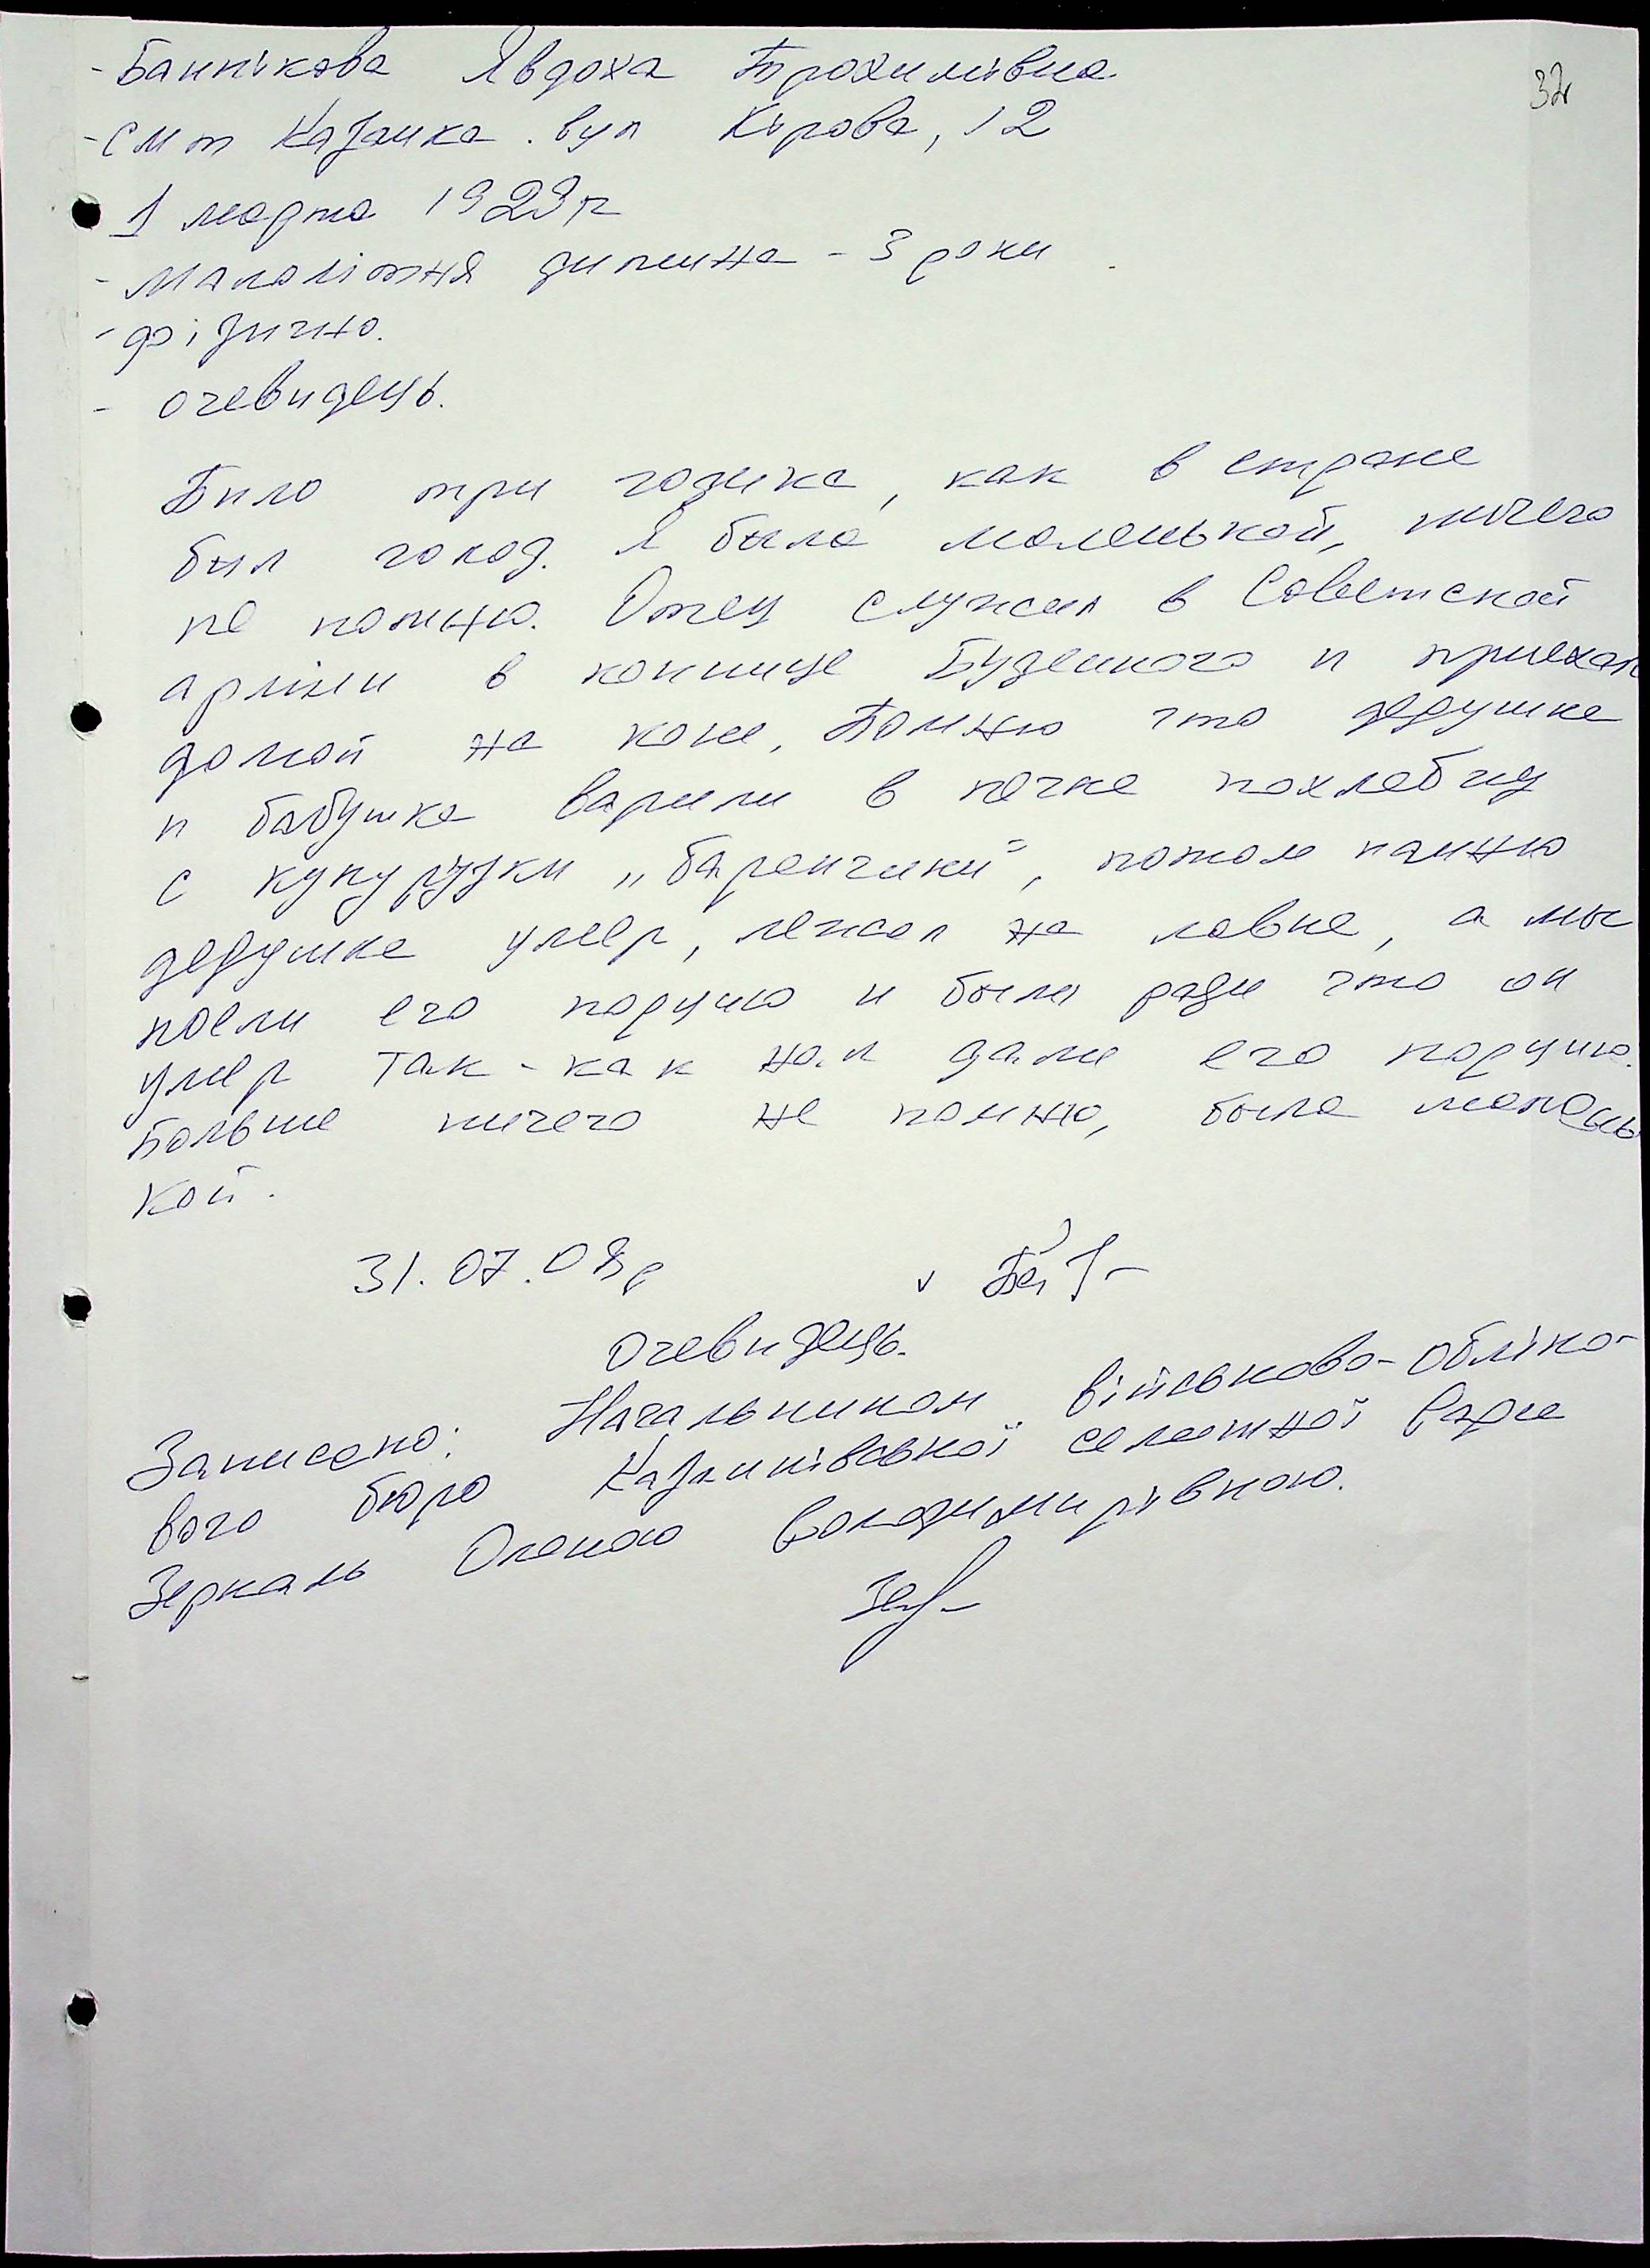 32
- Баннікова Явдоха Трохимівна
- смт Казанка. вул Кірова, 12
1 марта 1929 г
- малолітня дитина - 3 роки
- фізично.
- очевидець.
Било три годика, как в стране
был голод. Я была маленькой, ничего
не помню. Отец служил в Советской
армии в коннице Буденного и приехал
домой на коне, Помню что дедушка
и бабушка варили в печке похлебку
с кукурузки „баренчики", потом помню
дедушка умер, лежал на лавке, а мы
поели его порцию и были рады что он
умер так-как нам дали его порцию.
Больше ничего не помню, была малень
кой.
31.07.08р
очевидець.
Записано: Начальником військово-обліко-
вого бюро Казанківської селищної ради
Зеркаль Оленою Володимирівною.